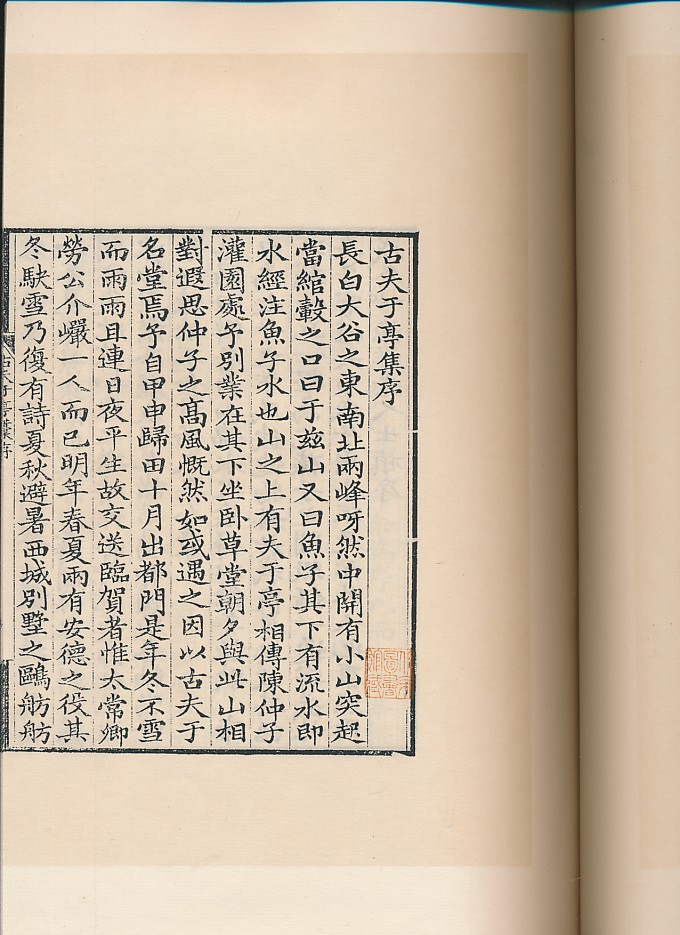 古夫于亭集序
長白大谷之東南北兩峰呀然中開有小山突起
當綰轂之口曰于兹山又曰魚子其下有流水即
水經注魚子水也山之上有夫于亭相傳陳仲子
灌園處予別業在其下坐卧草堂朝夕與此山相
對遐思仲子之高風慨然如或遇之因以古夫于
名堂焉予自甲申歸田十月出都門是年冬不雪
而雨雨且連日夜平生故交送臨賀者惟太常卿
勞公介巖一人而已明年春夏兩有安德之役其
冬駃雪乃復有詩夏秋避暑西城別墅之鷗舫舫